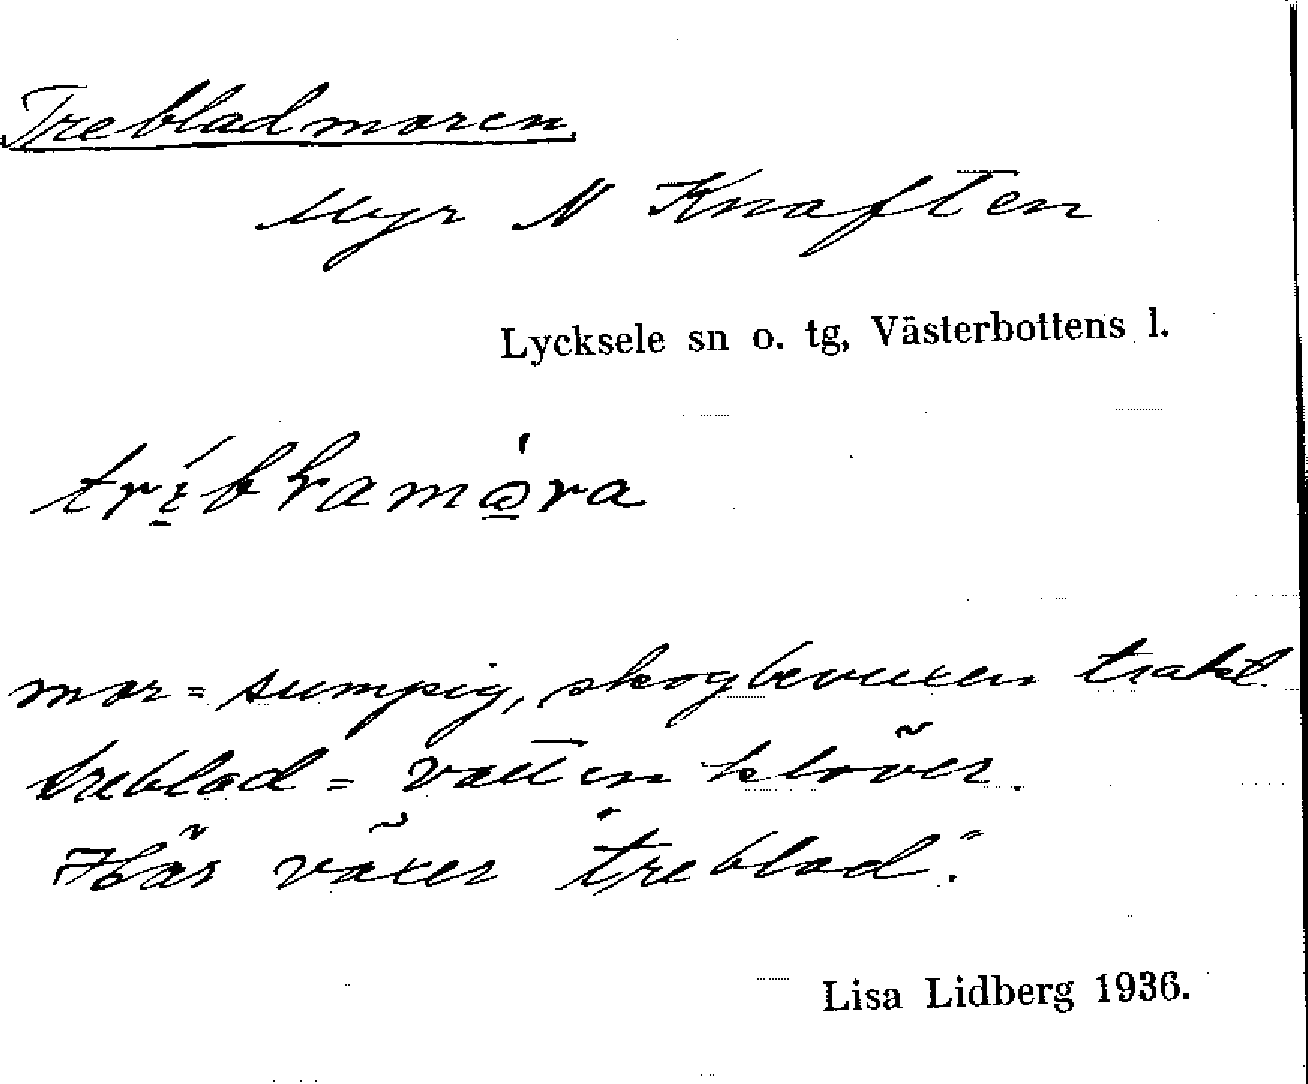 Trebladmoren
Myr N Knaften
Lycksele sn o. tg, Västerbottens l.
mor = sumpig, skogbevuxen trakt
treblad = vattenklöver.
Här växer "treblad".
Lisa Lidberg 1936.